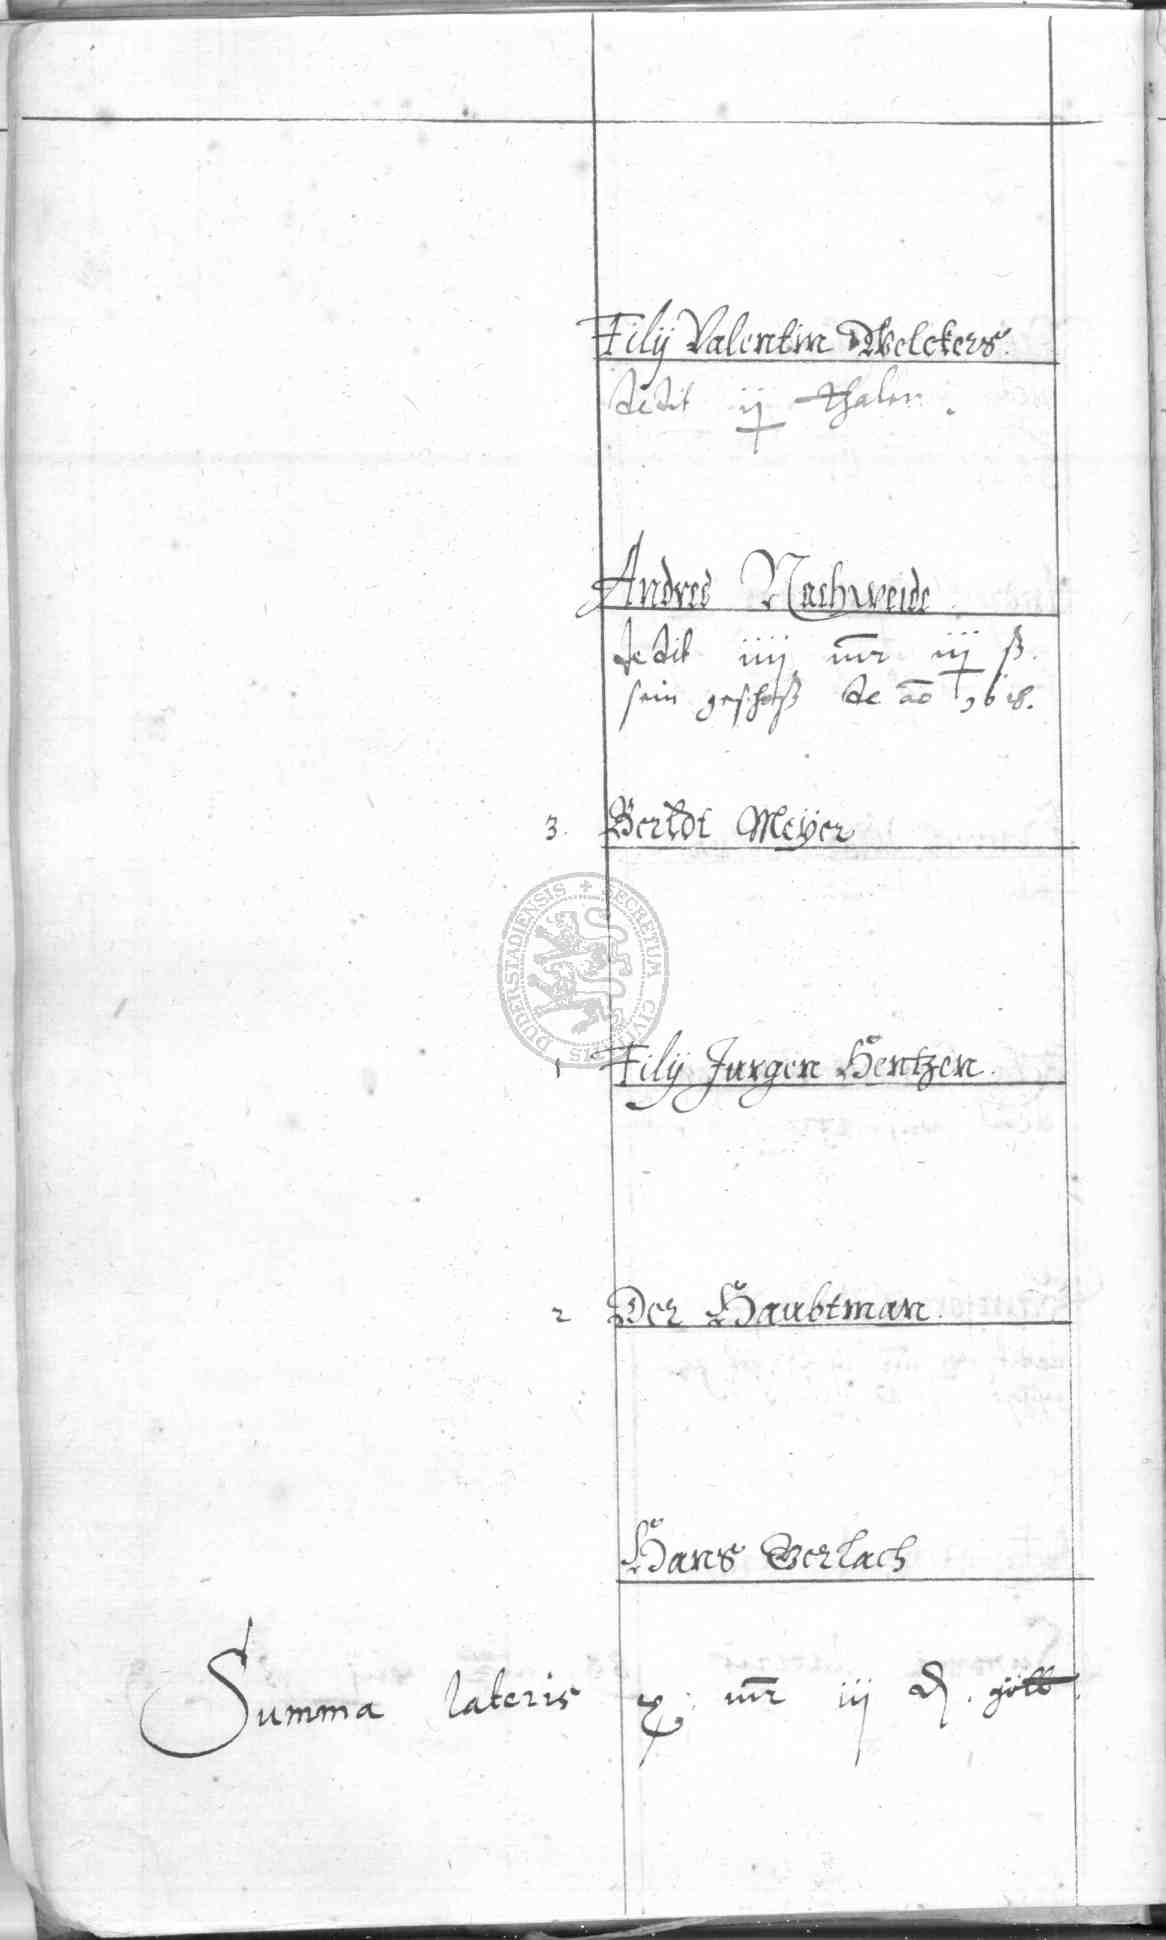 Filij Valentin Welckers.
dedit ij thaler.
Andres Nachweide
dedit iiij mr iij ß.
sein geschoß de ao 
3. Berldt Meÿer
DUDERSTADIENSIS + SECRETUM CIVITATIS
1 Filij Jurgen Hentzen.
2 Der Haubtman.
Hans Gerlach
Summa lateris x mr iij d. gött.